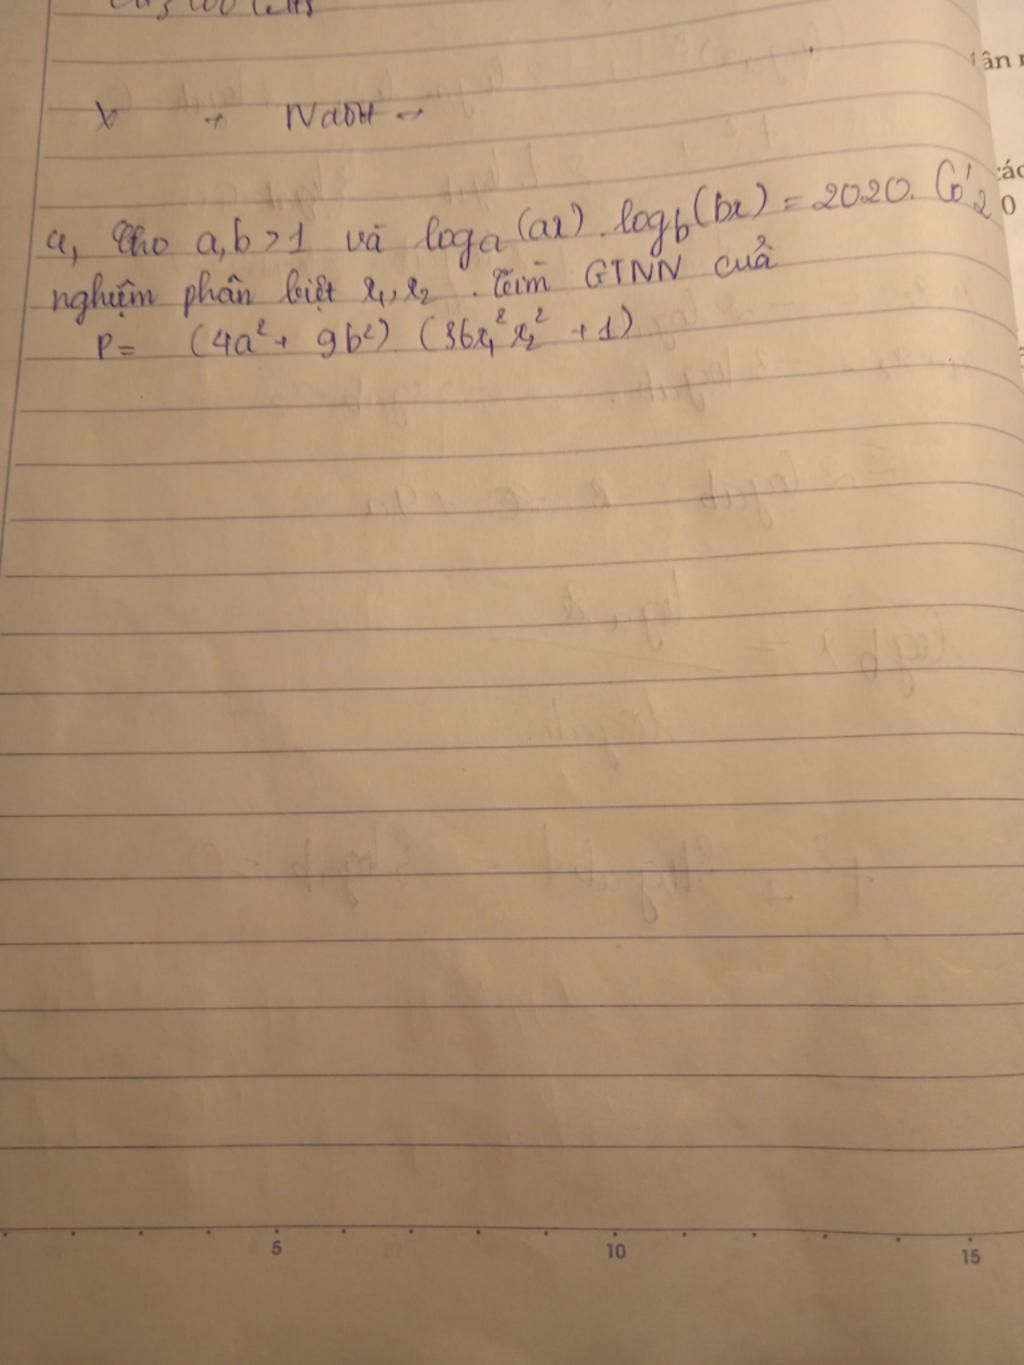 X + NaOH →
a, Cho a,b >1 và logₐ(ax).log_b(bx) = 2020. Có 2
nghiệm phân biệt x₁, x₂. Tìm GTNN cuả
P= (4a² + 9b²) (36x₁²x₂² + 1)
5 10 15